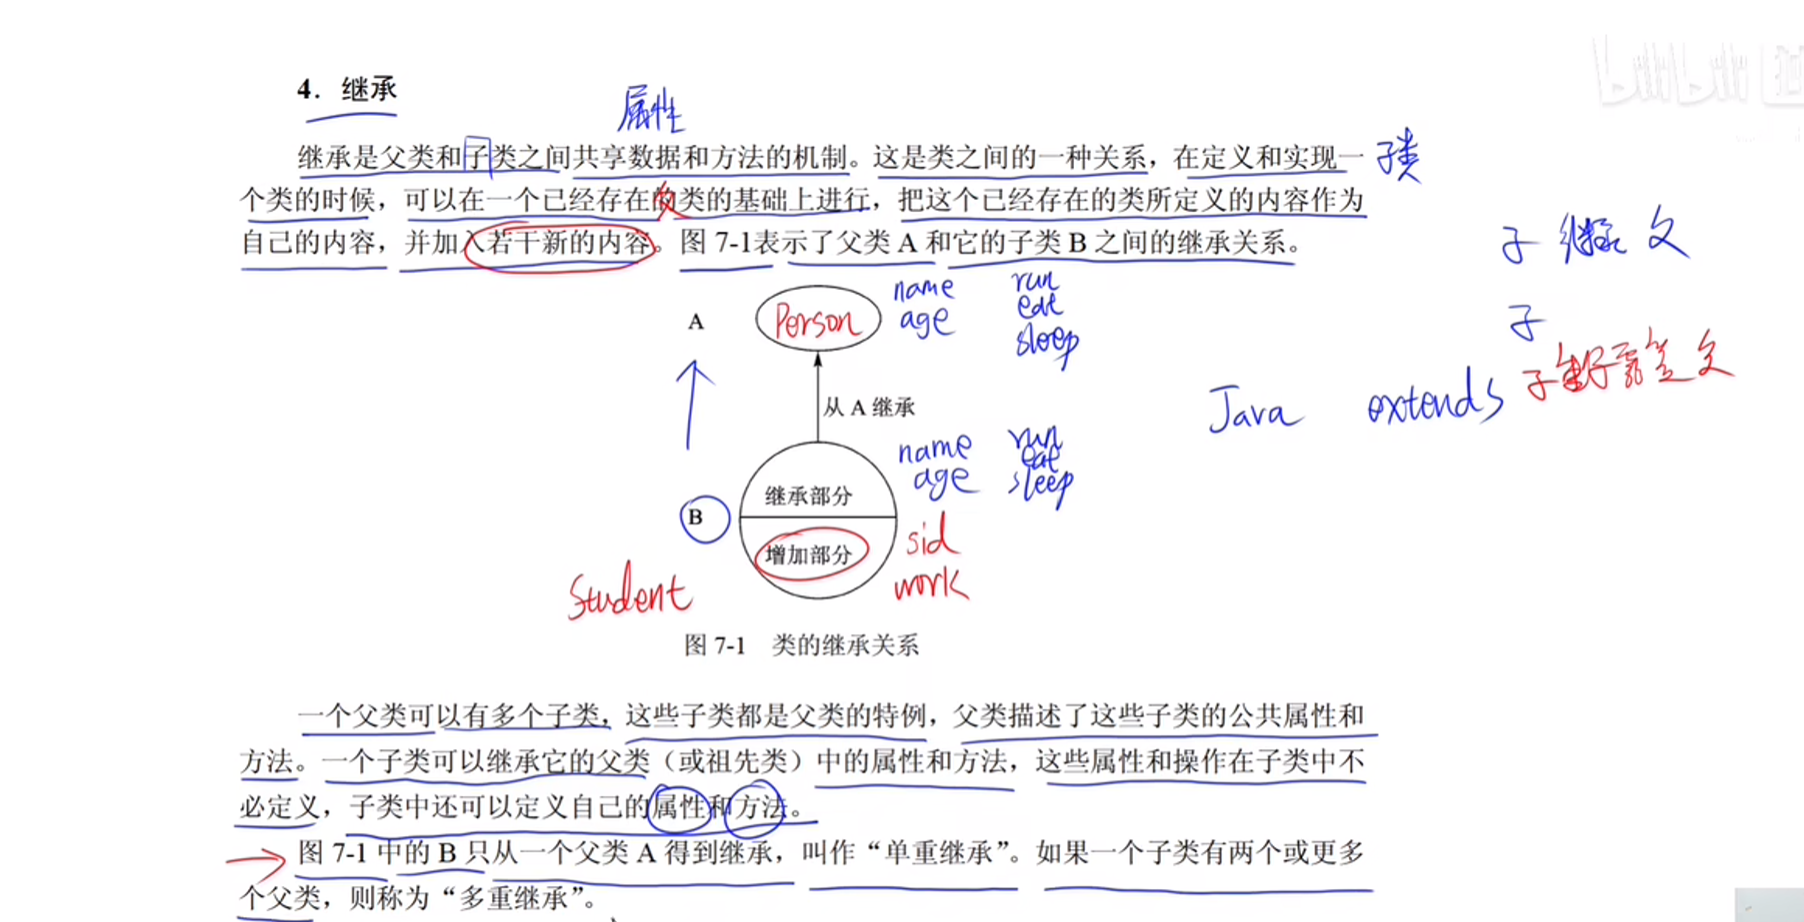 bilibili
4. 继承
属性
继承是父类和子类之间共享数据和方法的机制。这是类之间的一种关系，在定义和实现一 子类
个类的时候，可以在一个已经存在的类的基础上进行，把这个已经存在的类所定义的内容作为
自己的内容，并加入若干新的内容。图 7-1表示了父类 A 和它的子类 B 之间的继承关系。
子 继承 父
A Person name run
age eat
sleep
子
子 父
从 A 继承 Java extends
name run
age eat
sleep
继承部分
B
增加部分 sid
Student work
图 7-1 类的继承关系
一个父类可以有多个子类，这些子类都是父类的特例，父类描述了这些子类的公共属性和
方法。一个子类可以继承它的父类（或祖先类）中的属性和方法，这些属性和操作在子类中不
必定义，子类中还可以定义自己的属性和方法。
图 7-1 中的 B 只从一个父类 A 得到继承，叫作“单重继承”。如果一个子类有两个或更多
个父类，则称为“多重继承”。